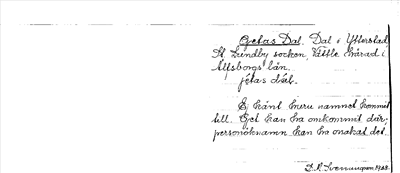 Getas Dal. Dal i Ytterstad,
St. Lundby socken, Vättle härad i
Älfsborgs län.
jétas dal.
Ej känt huru namnet kommit
till. Get kan ha omkommit där,
personöknamn kan ha orsakat det.
1928.